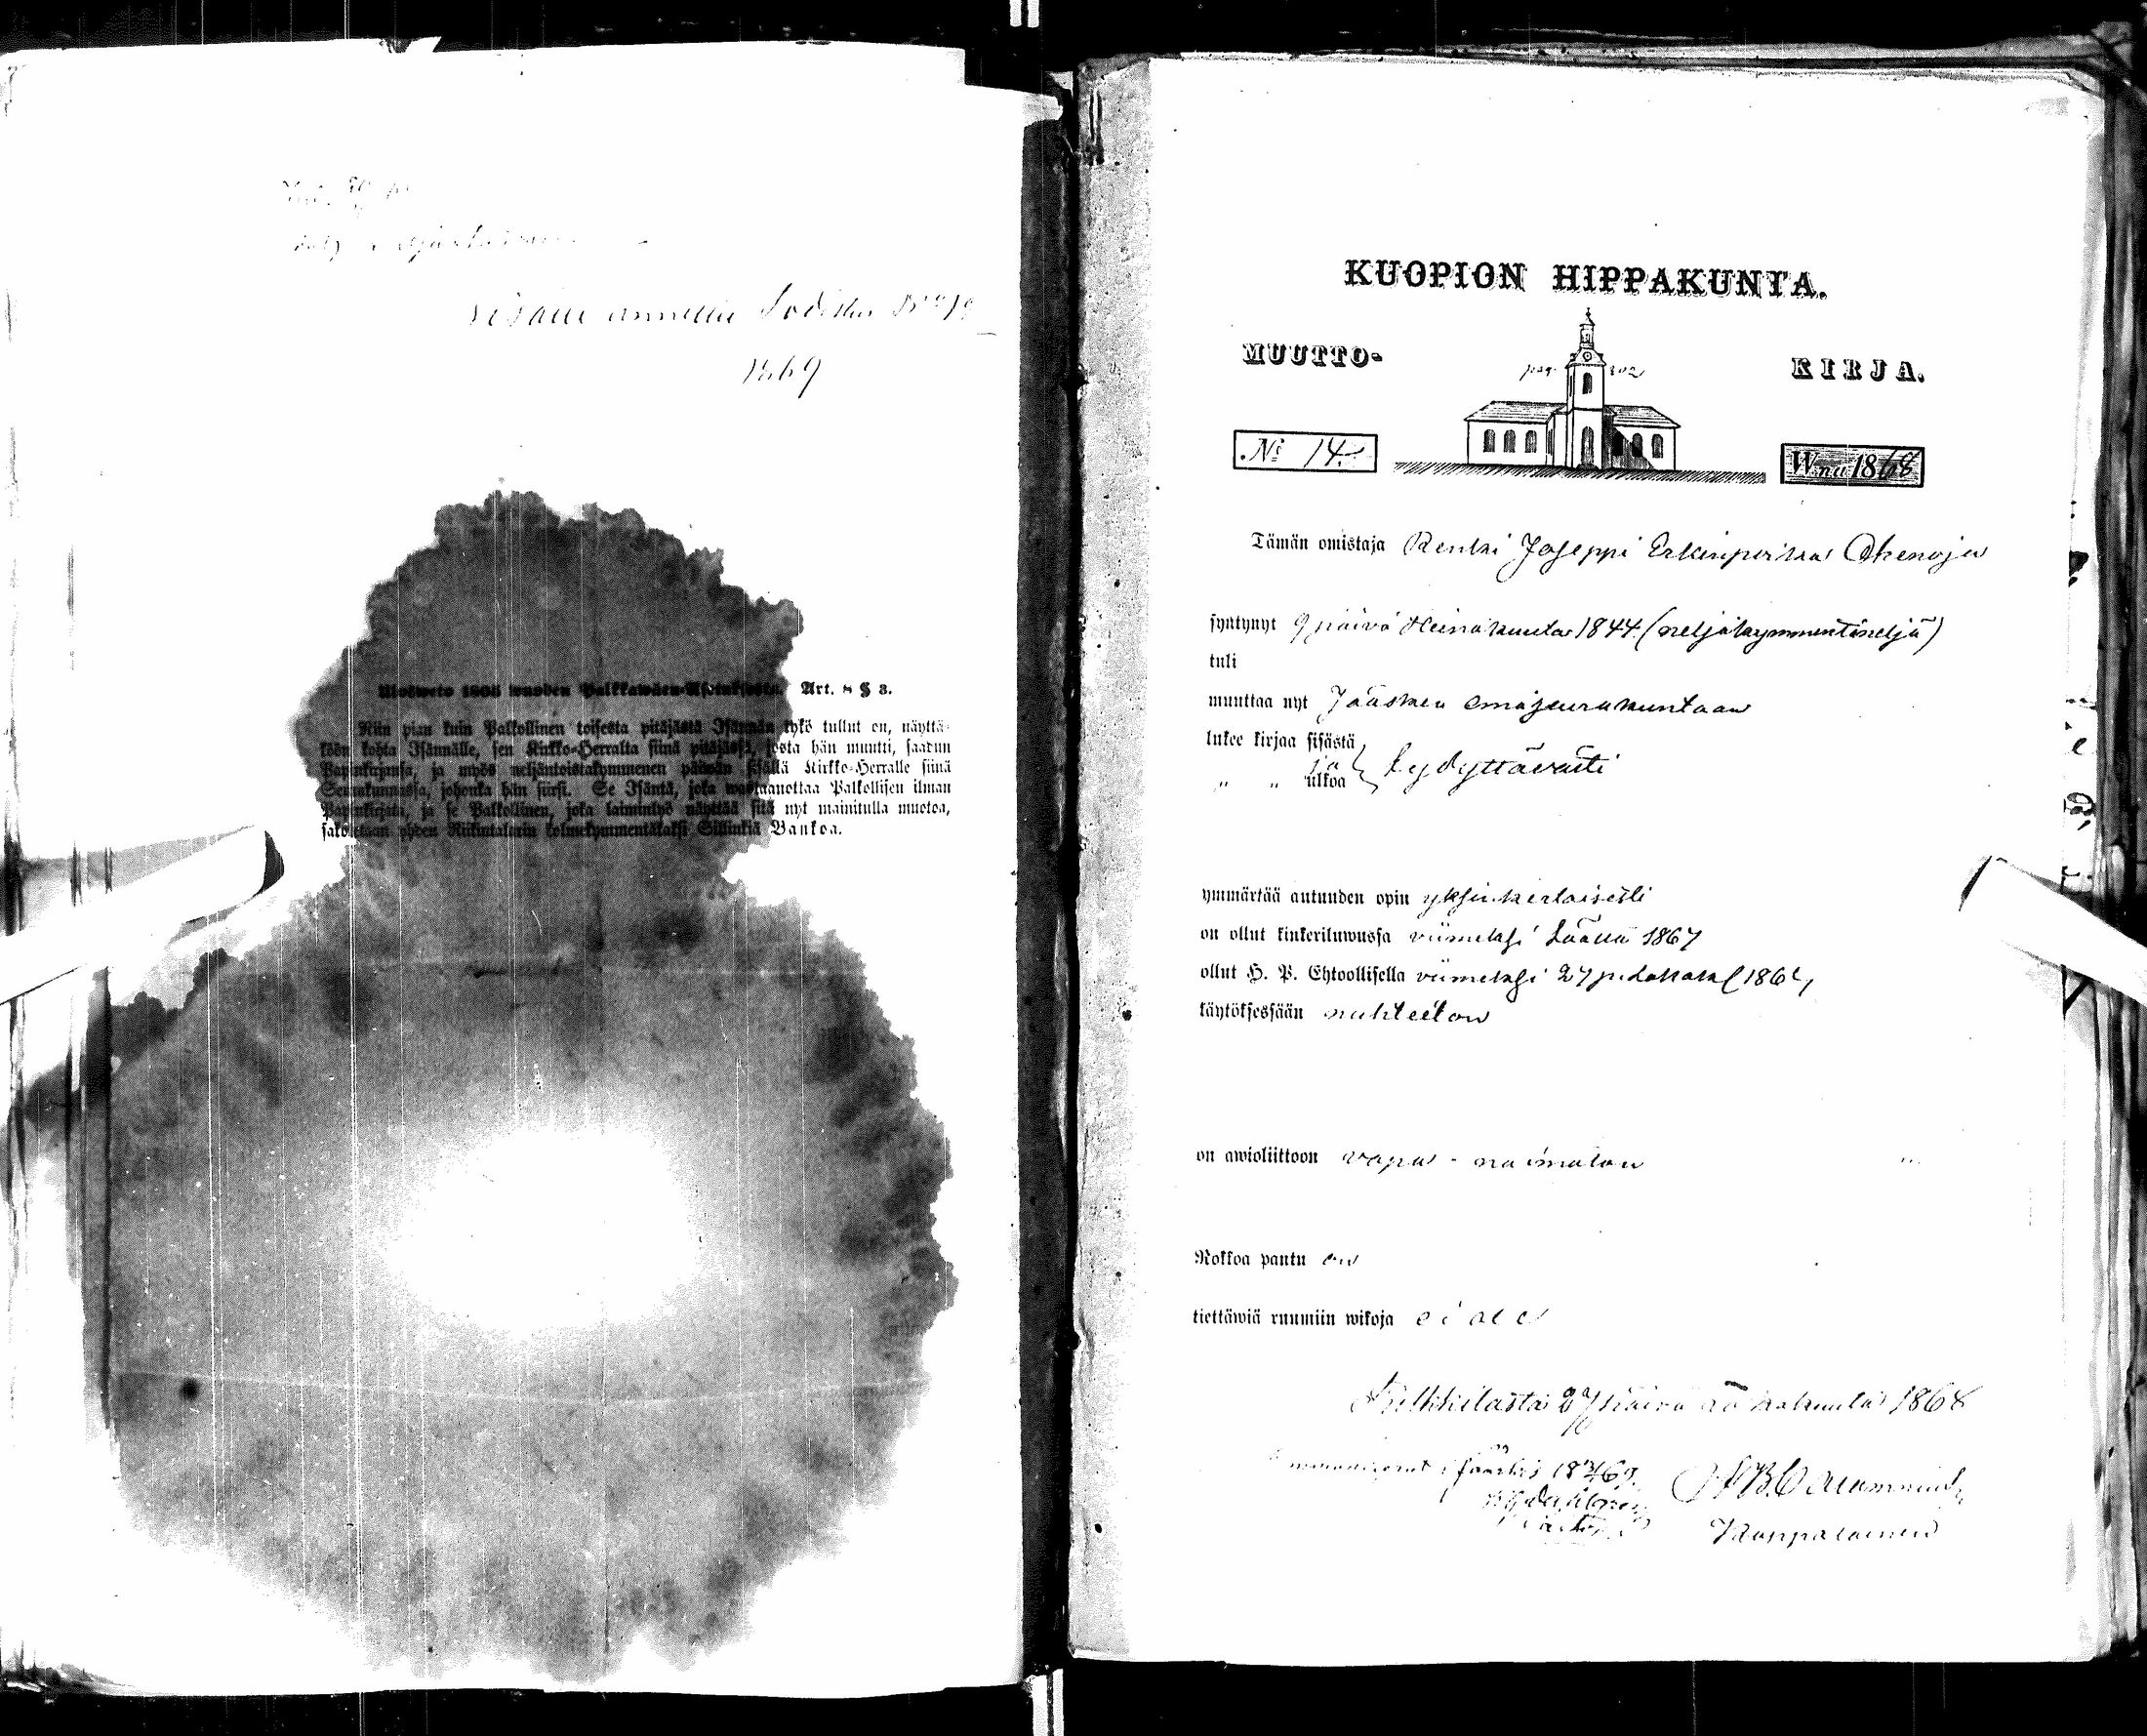 annettu Todistus
1869
Ulosweto 1805 wuoden Palkkawäen-Asetuksesta. Art. 8 § 3.
Niin pian kuin Palkollinen toisesta pitäjästä Isännän tykö tullut on, näyttä-
köön kohta Isännälle, sen Kirkko-Herralta siinä pitäjässä, josta hän muutti, saadun
Papinkirjansa, ja myös neljäntoistakymmenen päiwän sisällä Kirkko-Herralle siinä
Seurakunnassa, johonka hän siirsi. Se Isäntä, joka wastaanottaa Palkollisen ilman
Papinkirjata, ja se Palkollinen, joka laiminlyö näyttää sitä nyt mainitulla muotoa,
sakoitetaan yhden Riikintalarin kolmekymmentäkaksi Sillinkiä Bankoa.
KUOPION HIPPAKUNTA.
MUUTTO- KIRJA.
pag. 802
№ 14. Wna 1868
Tämän omistaja Renki Joseppi Erkinpoika Ohenoja
syntynyt 9 päivä Heinäkuuta 1844 (neljäkymmentäneljä)
tuli
muuttaa nyt Jääsken emäseurakuntaan
lukee kirjaa sisästä
ja
" " ulkoa } tydyttävästi
ymmärtää autuuden opin yksinkertaisesti
on ollut kinkeriluwussa viimeksi täällä 1867
ollut H. P. Ehtoollisella viimeksi 27 p. Lokak.
käytöksessään nuhteeton
on awioliittoon vapa - naimaton
Rokkoa pantu on
tiettäwiä ruumiin wikoja ei ole
Pulkkilasta 27 päivä kuuta 1868
Kappalainen